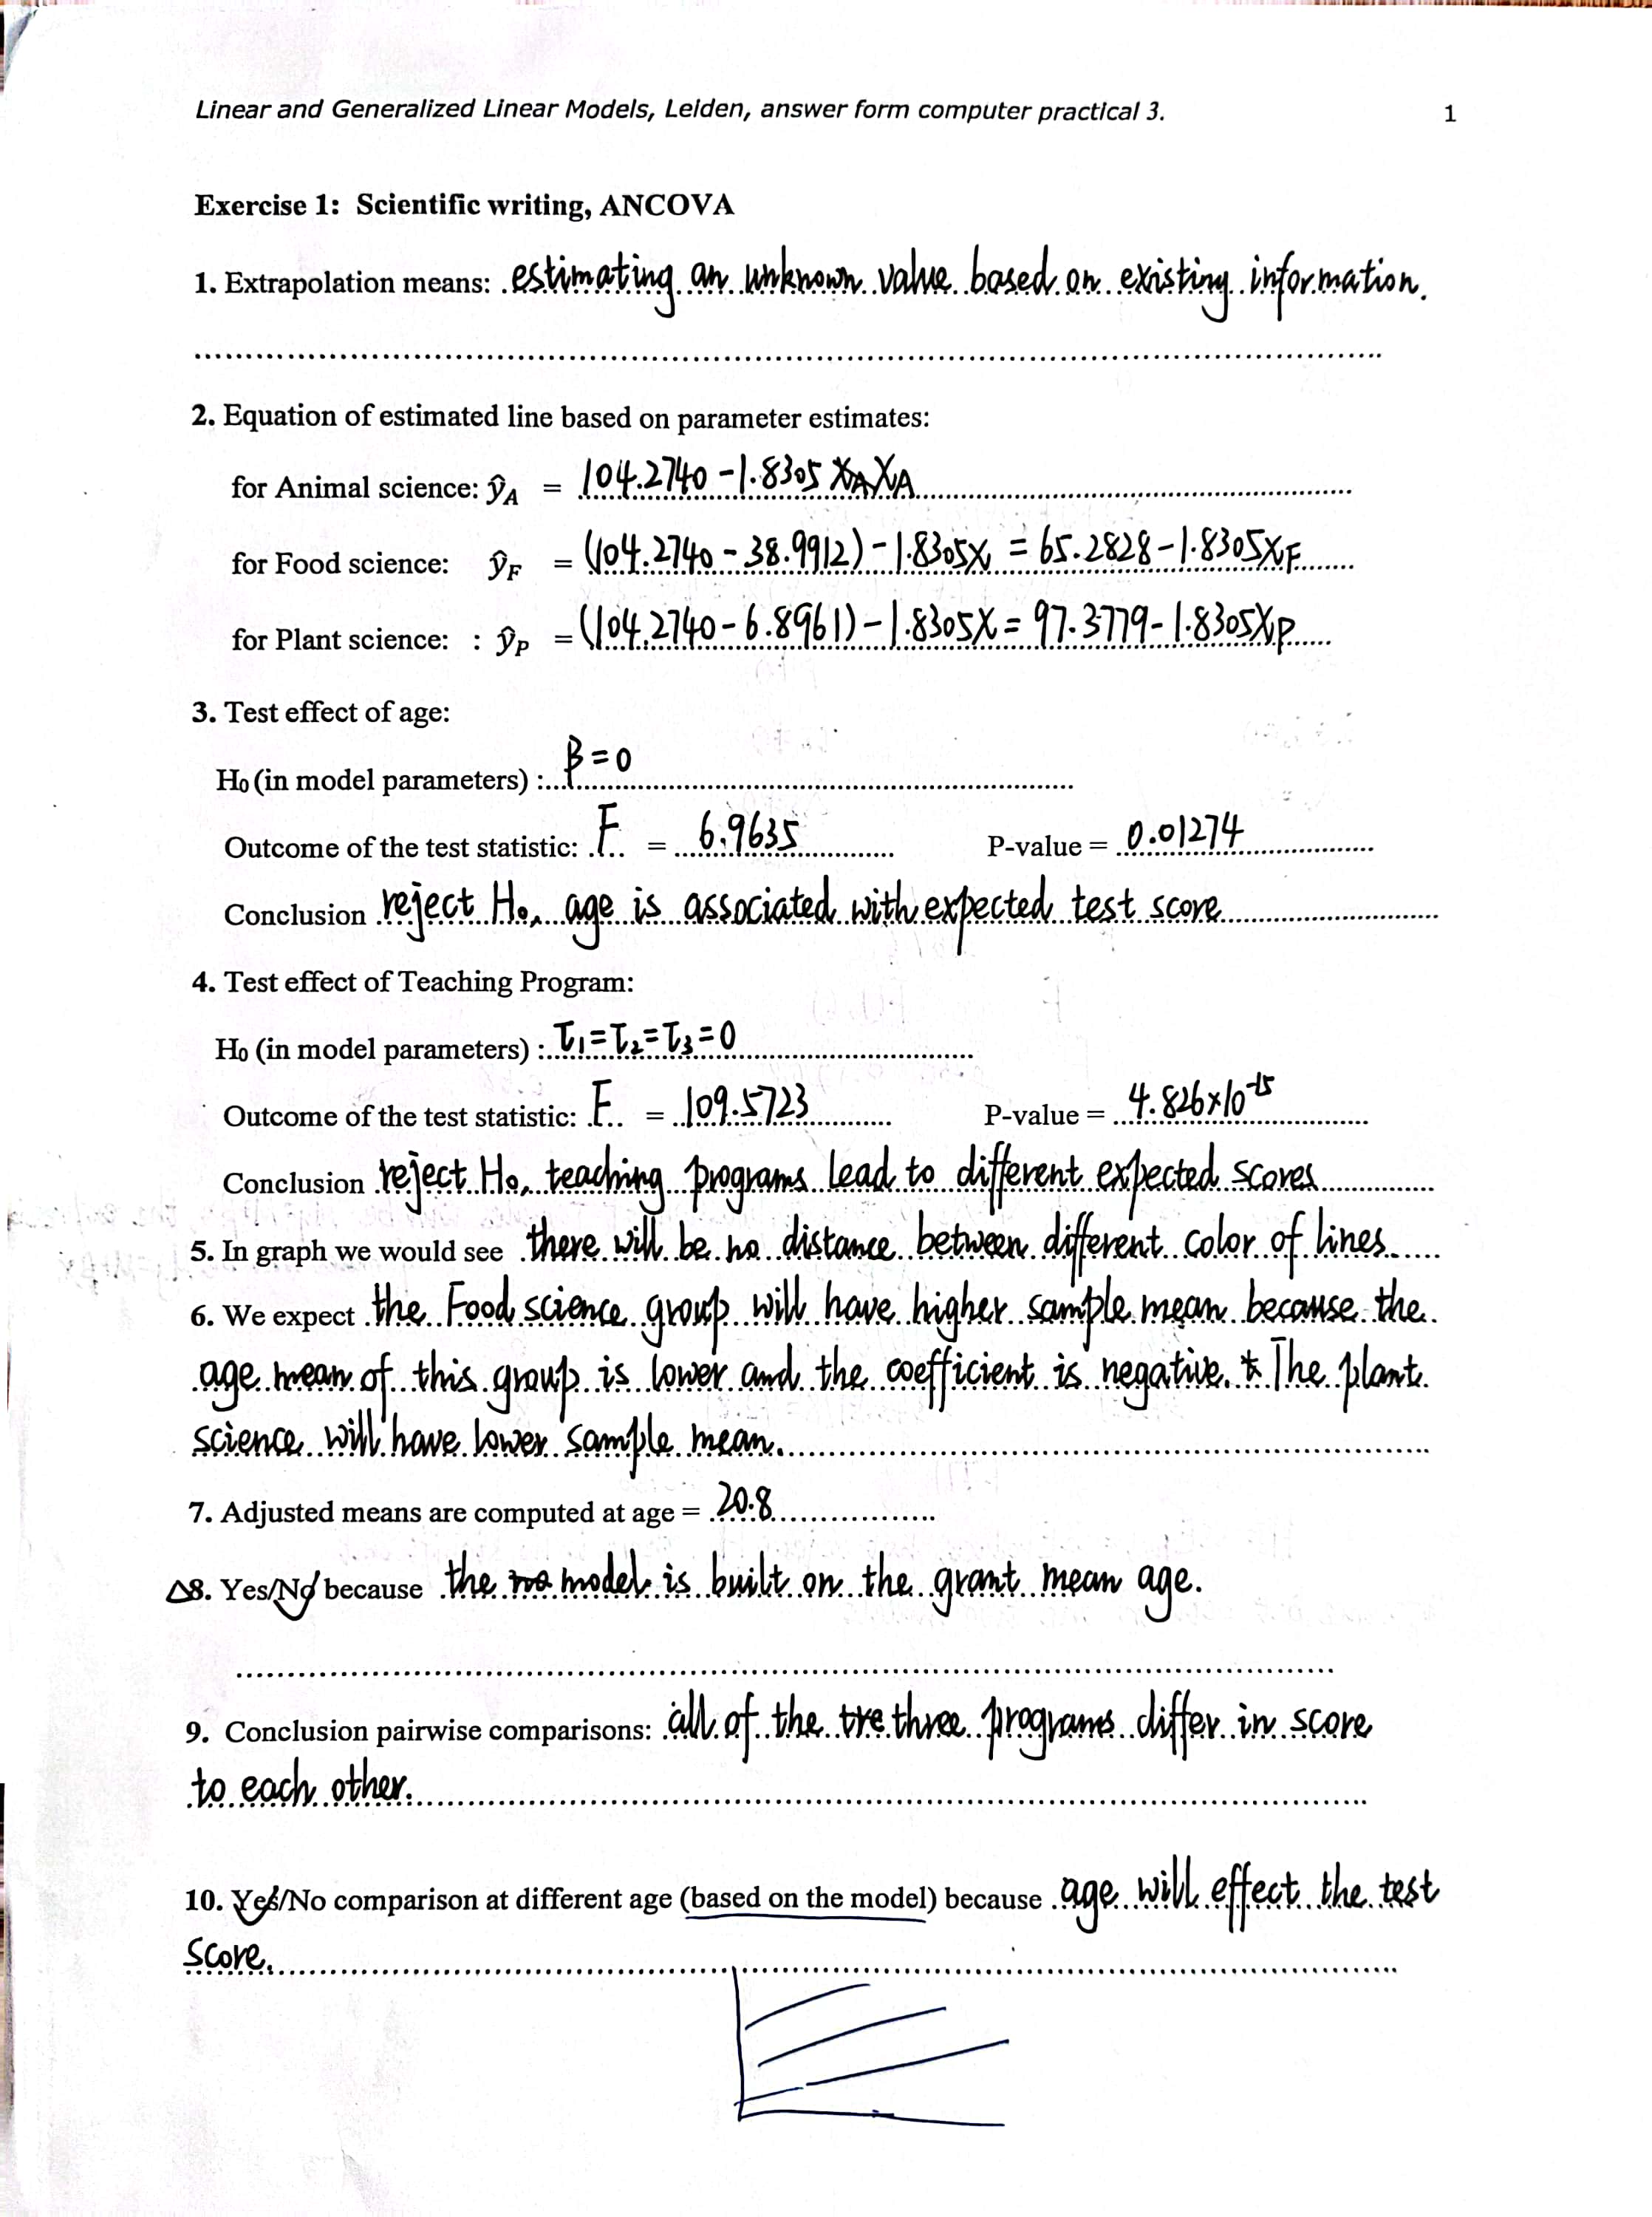 Linear and Generalized Linear Models, Leiden, answer form computer practical 3. 1
Exercise 1: Scientific writing, ANCOVA
1. Extrapolation means: estimating an unknown value based on existing information.
2. Equation of estimated line based on parameter estimates:
for Animal science: ŷA = 104.2740 - 1.8305 XA
for Food science: ŷF = (104.2740 - 38.9912) - 1.8305X = 65.2828 - 1.8305XF
for Plant science: : ŷP = (104.2740 - 6.8961) - 1.8305X = 97.3779 - 1.8305XP
3. Test effect of age:
H0 (in model parameters) : β = 0
Outcome of the test statistic: F = 6.9635 P-value = 0.01274
Conclusion reject H0, age is associated with expected test score
4. Test effect of Teaching Program:
H0 (in model parameters) : τ1 = τ2 = τ3 = 0
Outcome of the test statistic: F = 109.5723 P-value = 4.826×10^-15
Conclusion reject H0, teaching programs lead to different expected scores
5. In graph we would see there will be no distance between different color of lines
6. We expect the Food science group will have higher sample mean because the
age mean of this group is lower and the coefficient is negative. The plant
science will have lower sample mean.
7. Adjusted means are computed at age = 20.8
Δ8. Yes/No because the model is built on the grant mean age.
9. Conclusion pairwise comparisons: all of the three programs differ in score
to each other.
10. Yes/No comparison at different age (based on the model) because age will effect the test
score.